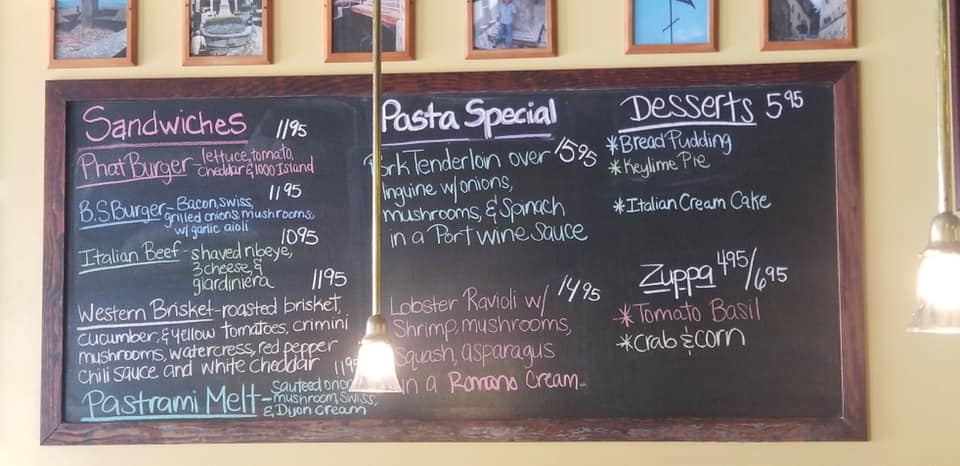 Sandwiches 11 95
Phat Burger - lettuce, tomato,
cheddar & 1000 Island
11 95
B.S Burger - Bacon, swiss,
grilled onions, mushrooms,
w/ garlic aioli
10 95
Italian Beef - shaved ribeye,
3 cheese, &
giardiniera
11 95
Western Brisket - roasted brisket,
cucumber, & yellow tomatoes, crimini
mushrooms, watercress, red pepper
Chili sauce and white cheddar
Pastrami Melt - Sauteed
mushroom, Swiss,
& Dijon Cream
Pasta Special
Tenderloin over 15 95
w/ onions,
mushrooms, & Spinach
in a Port wine Sauce
Lobster Ravioli w/ 14 95
Shrimp, mushrooms,
Squash, asparagus
in a Romano Cream
Desserts 5 95
*Bread Pudding
*Keylime Pie
*Italian Cream Cake
Zuppa 4 95/6 95
*Tomato Basil
*Crab & Corn